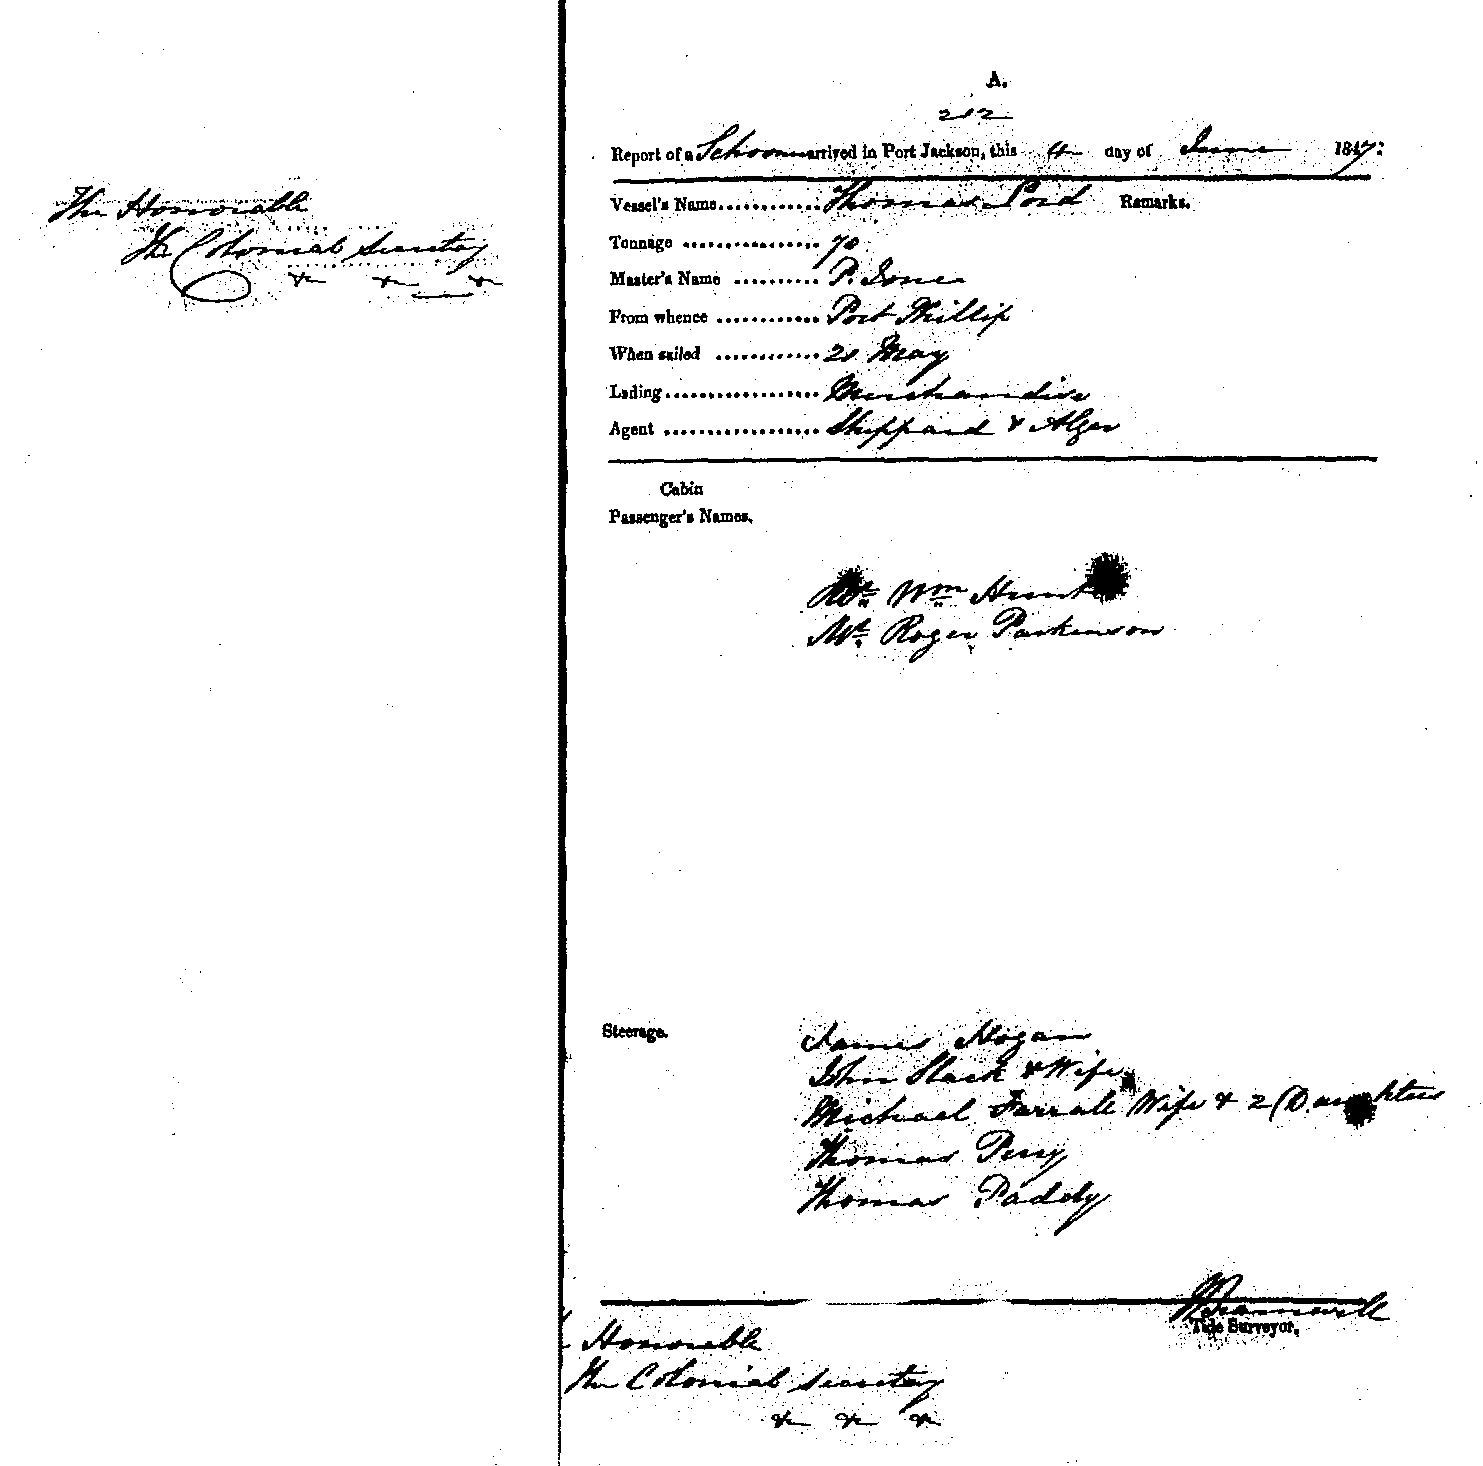 The Honorable
The Colonial Secretary
&c &c &c
A.
212
Report of a Schooner arrived in Port Jackson, this 4 day of June 1847:
Vessel's Name............ Thomas Lord Remarks.
Tonnage ................ 70
Master's Name .......... P. Jones
From whence ............ Port Phillip
When sailed ............ 21 May
Lading.................. Merchandise
Agent .................. Sheppard & Alger
Cabin
Passenger's Names.
Mr. Wm Hunt
Mr. Roger Parkinson
Steerage.
James Hogan
John Slack & Wife
Michael Farrell Wife & 2 Daughters
Thomas Perry
Thomas Paddy
Tide Surveyor.
Honorable
The Colonial Secretary
&c &c &c